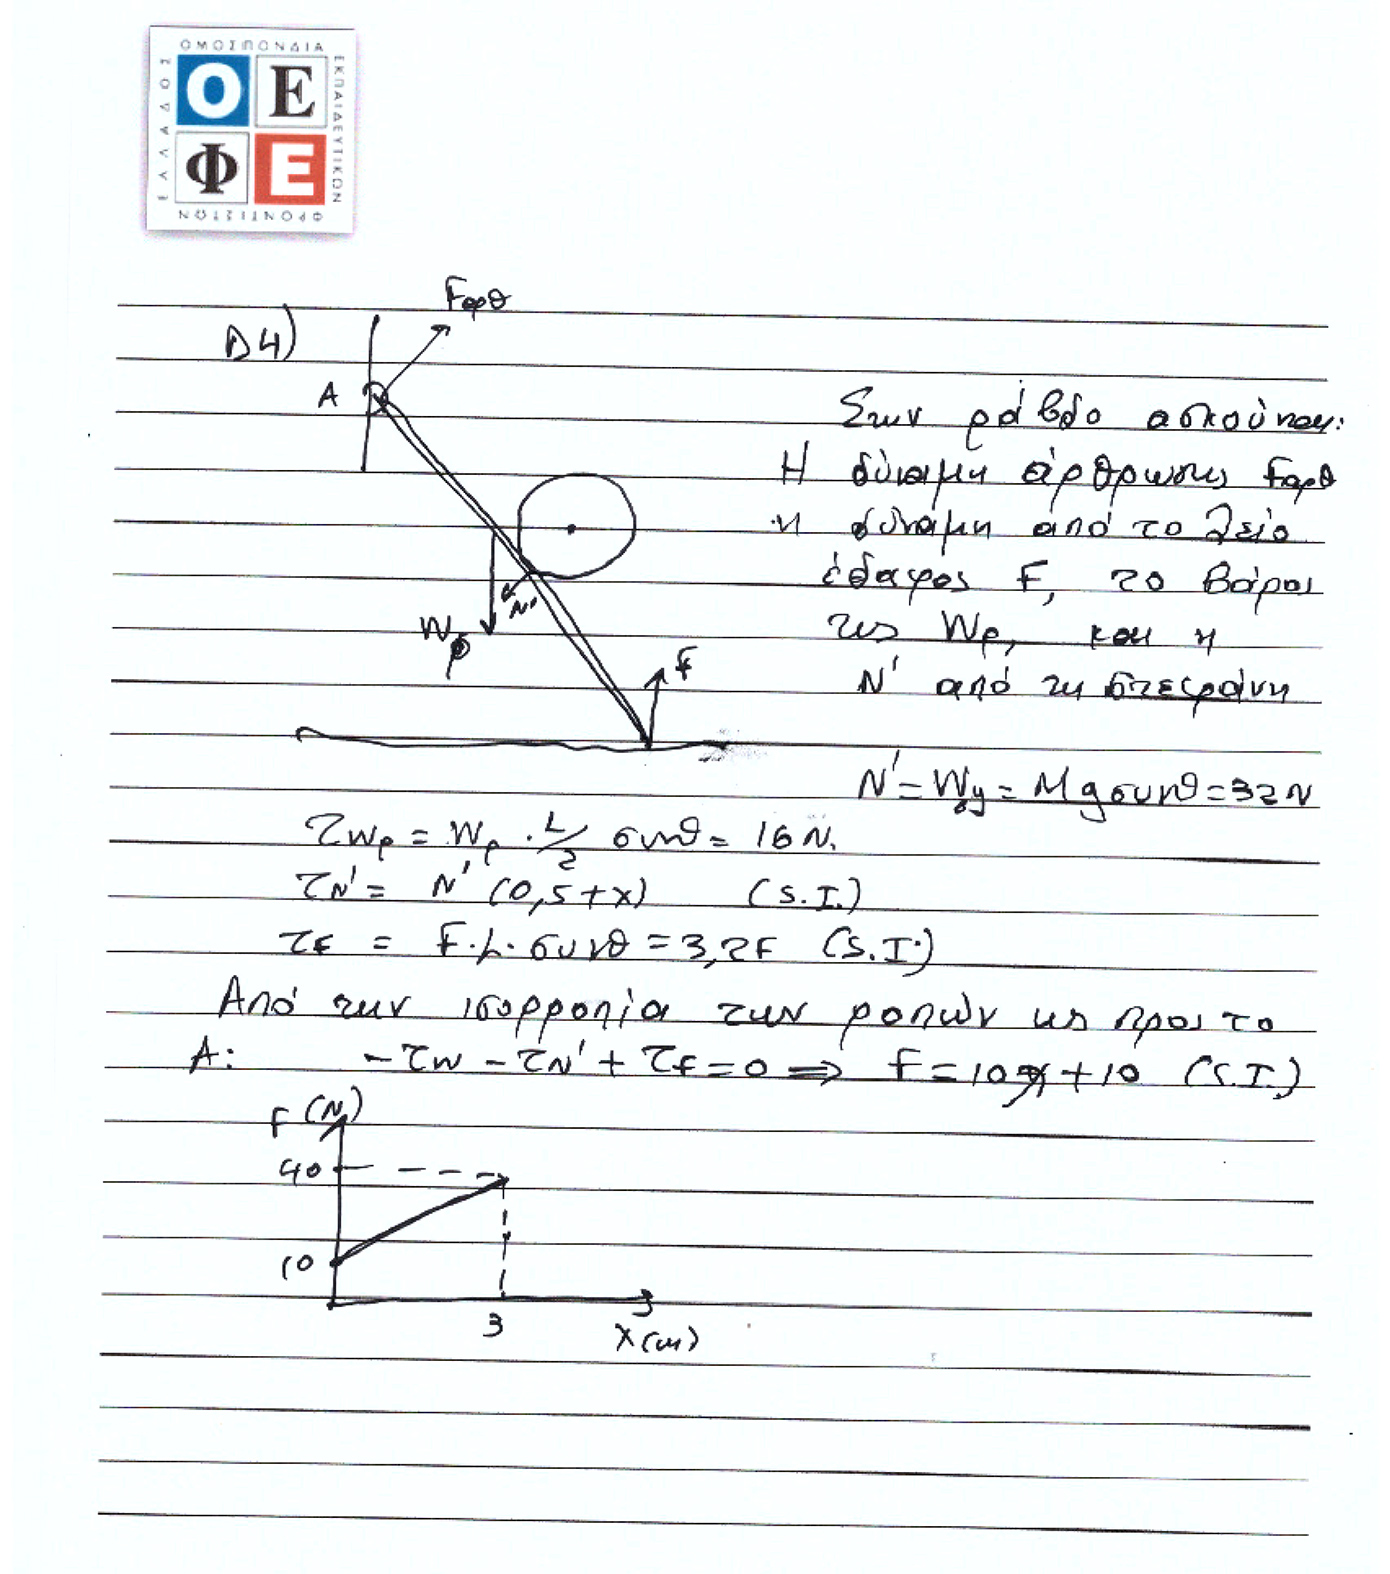 ΟΜΟΣΠΟΝΔΙΑ
ΕΚΠΑΙΔΕΥΤΙΚΩΝ
ΦΡΟΝΤΙΣΤΩΝ
ΕΛΛΑΔΟΣ
Ο Ε
Φ Ε
Δ4)
Fαρθ
A
Στην ράβδο ασκούνται:
Η δύναμη άρθρωσης Fαρθ
η δύναμη από το λείο
έδαφος F, το βάρος
της Wρ, και η
N' από τη στεφάνη
N'
Wρ
F
N' = Wy = Mgσυνθ = 32N
τWρ = Wρ · L/2 συνθ = 16 N.
τN' = N' (0,5+x) (S.I.)
τF = F·L·συνθ = 3,2F (S.I.)
Από την ισορροπία των ροπών ως προς το
A: -τW - τN' + τF = 0 ⇒ F = 10x + 10 (S.I.)
F (N)
40
10
3
X(m)